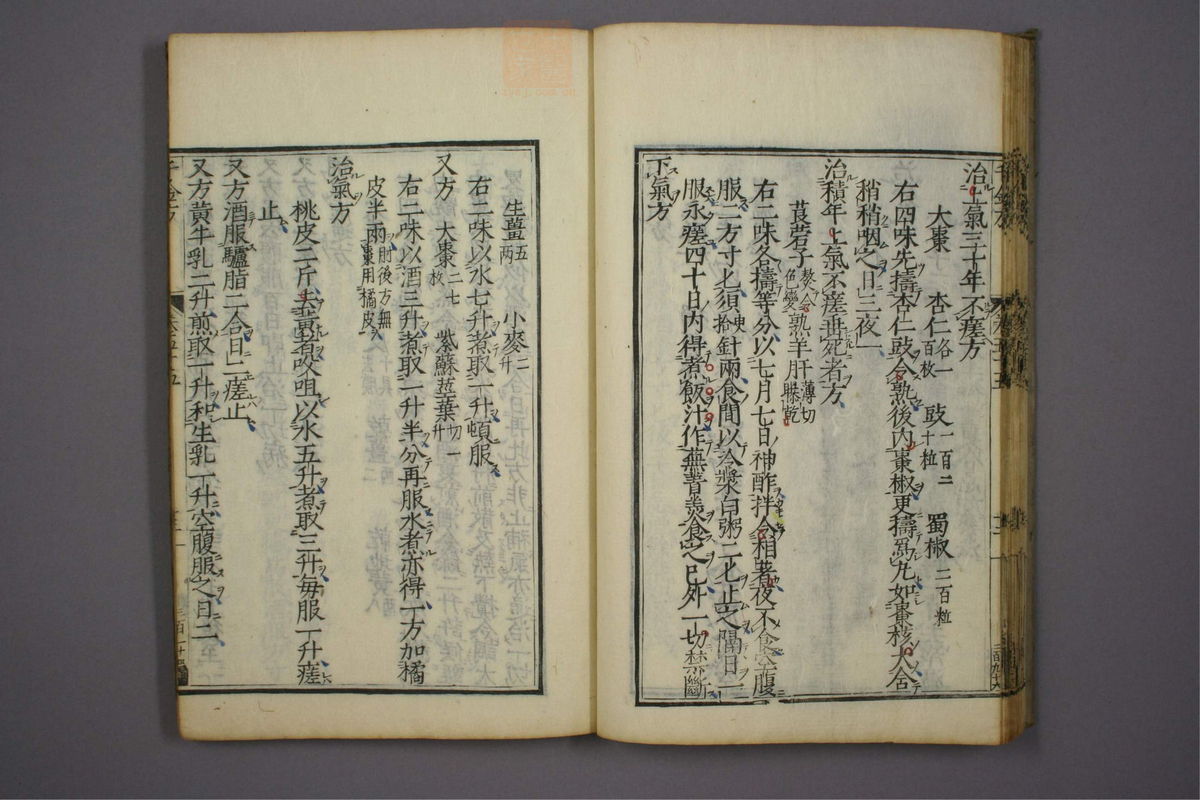 治上氣三十年不瘥方
大棗 杏仁各一百枚 豉一百二十粒 蜀椒二百粒
右四味先擣杏仁豉令熟後内棗椒更擣爲丸如棗核大含
稍稍咽之日三夜一
治積年上氣不瘥垂死者方
莨菪子熬令色變 熟羊肝薄切曝乾
右二味各擣等分以七月七日神酢拌令相著夜不食空腹
服二方寸匕須臾拾針兩食間以冷漿白粥二匕止之隔日一
服永瘥四十日内得煮飯汁作蕪菁羹食之已外一切禁斷
下氣方
生薑五两 小麥二升
右二味以水七升煮取一升頓服
又方 大棗二七枚 紫蘇莖葉切一升
右二味以酒三升煮取一升半分再服水煮亦得一方加橘
皮半兩肘後方無棗用橘皮
治氣方
桃皮二斤去黄㕮咀以水五升煮取三升每服一升瘥
止
又方酒服驢脂二合日二瘥止
又方黄牛乳二升煎取一升和生乳一升空腹服之日二